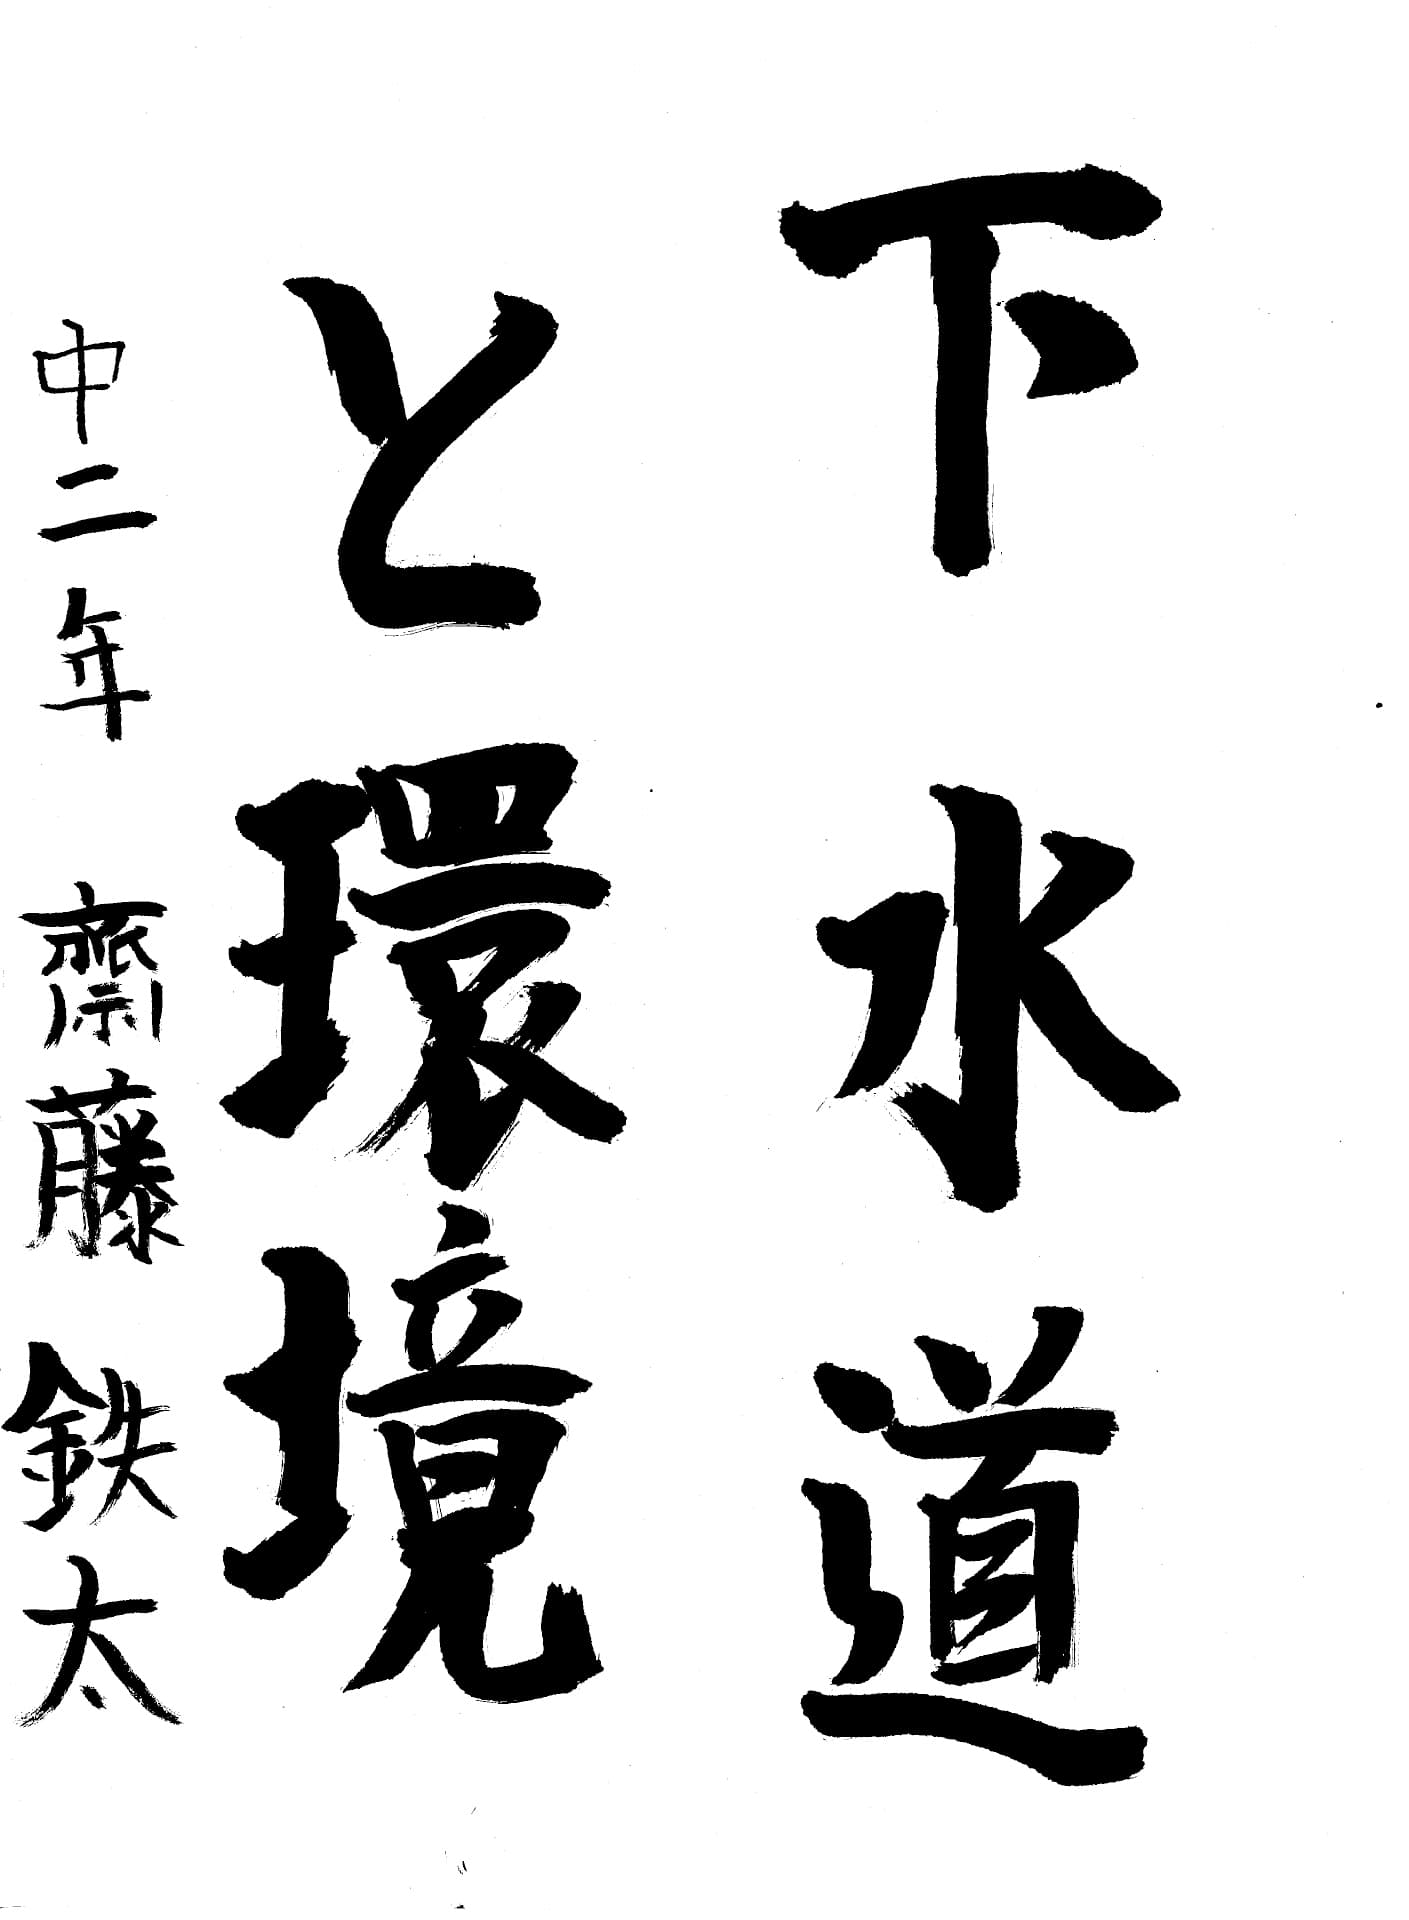 下水道
と環境
中二年 齋藤鉄太